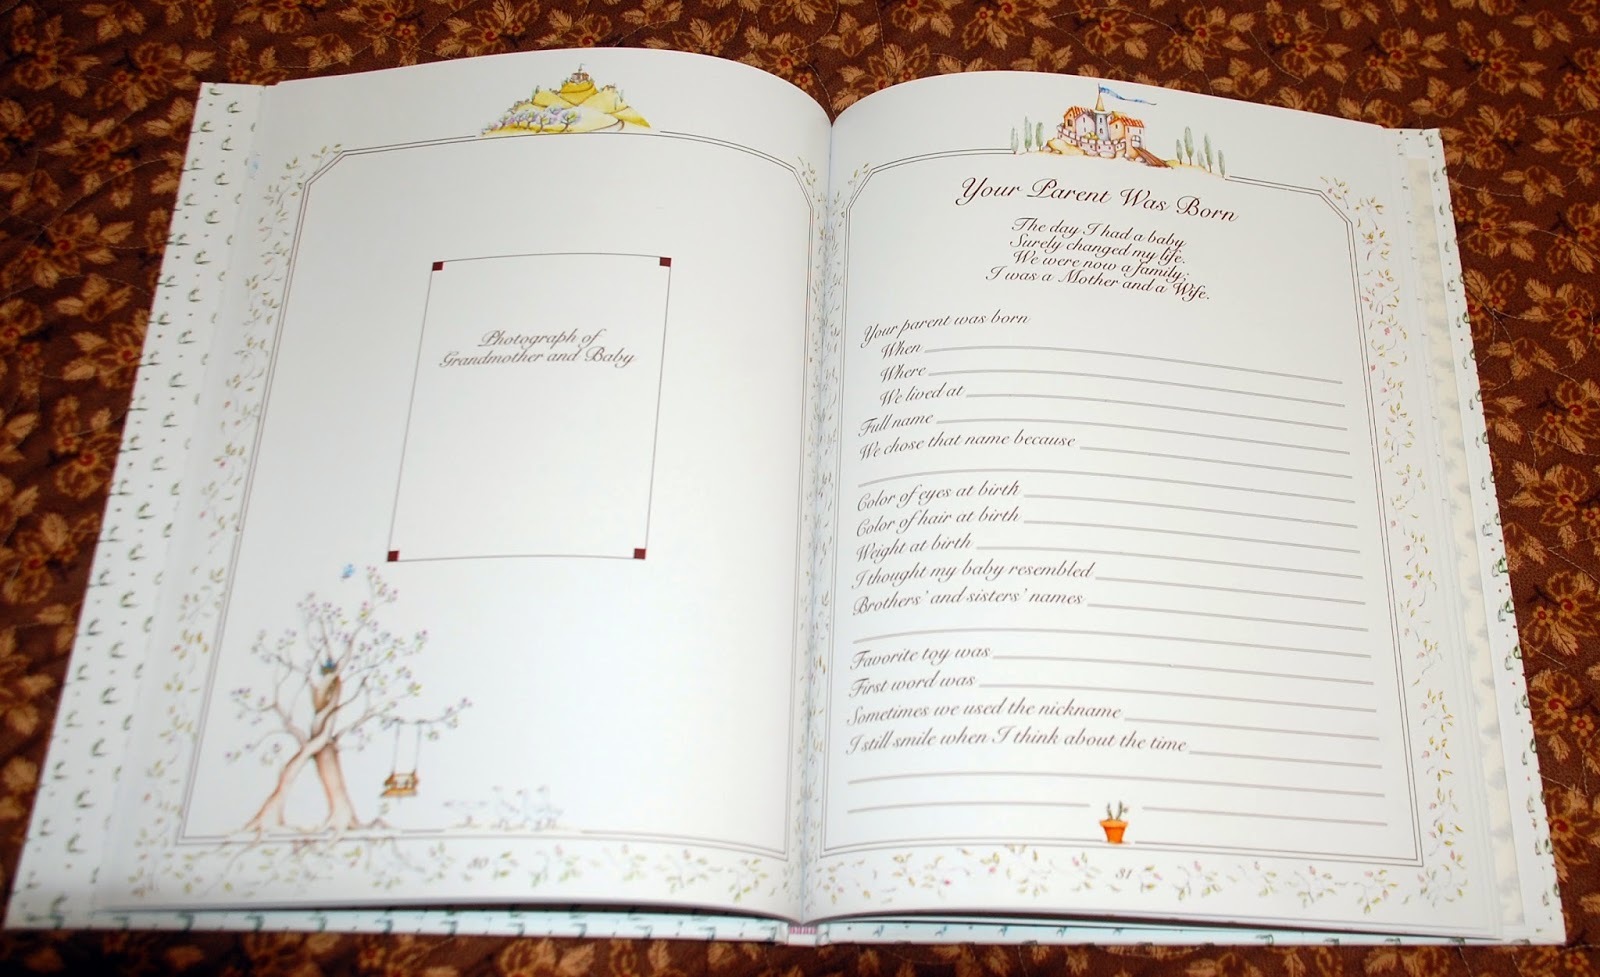 Photograph of
Grandmother and Baby
30
Your Parent Was Born
The day I had a baby
Surely changed my life.
We were now a family;
I was a Mother and a Wife.
Your parent was born
When
Where
We lived at
Full name
We chose that name because
Color of eyes at birth
Color of hair at birth
Weight at birth
I thought my baby resembled
Brothers' and sisters' names
Favorite toy was
First word was
Sometimes we used the nickname
I still smile when I think about the time
31